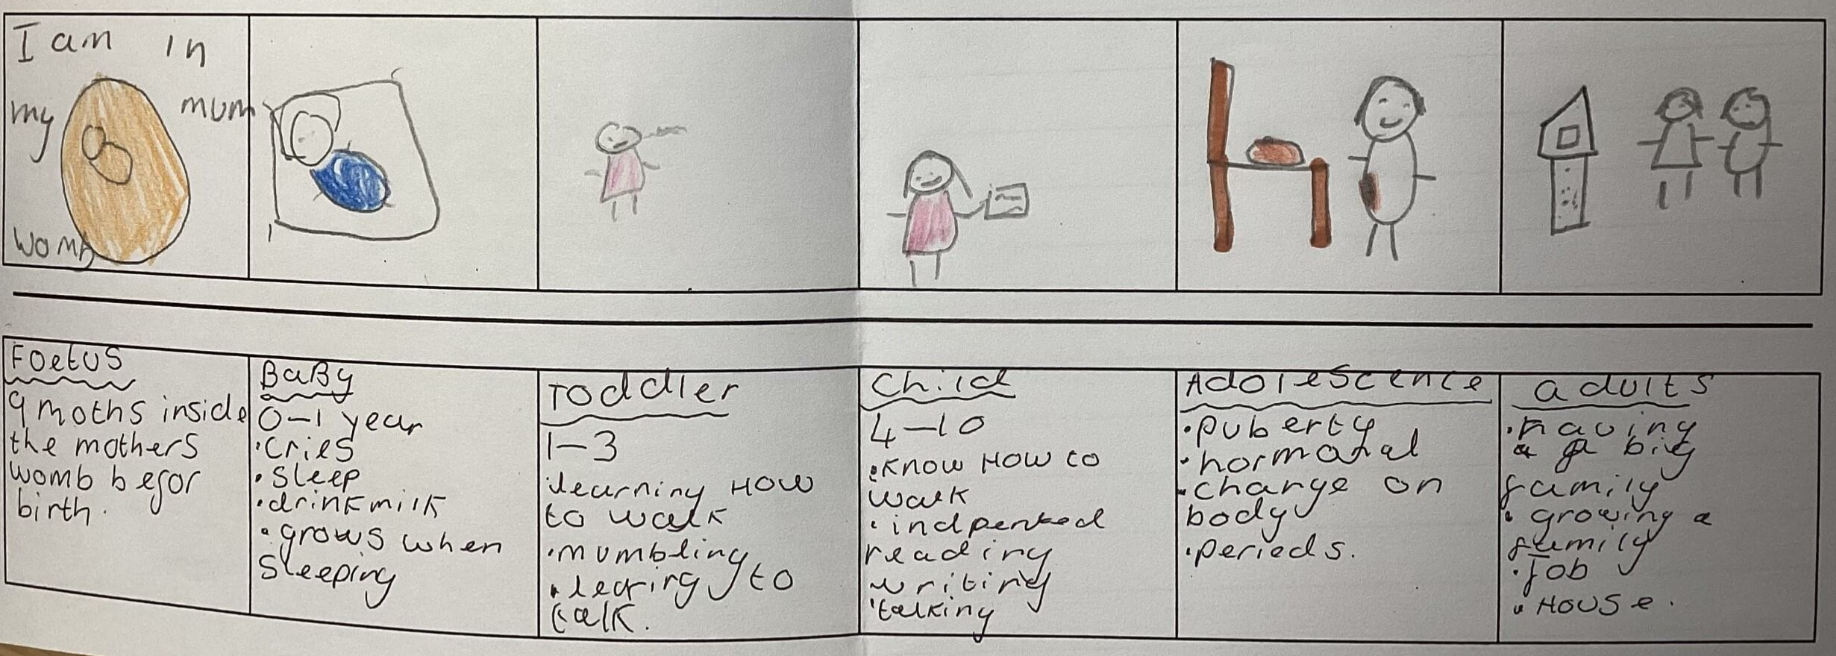 I am in
my mum
womb
Foetus
9 moths inside
the mothers
womb befor
birth.
BaBy
0-1 year
•Cries
•Sleep
•drink milk
•grows when
Sleeping
Toddler
1-3
•learning HOW
to walk
•mumbling
•learing to
talk.
Child
4-10
•Know HOW to
walk
•indpented
reading
writing
•talking
Adolescence
•puberty
•hormonal
•change on
body
•perieds.
adults
•having
a big
family
•growing a
family
•Job
•House.